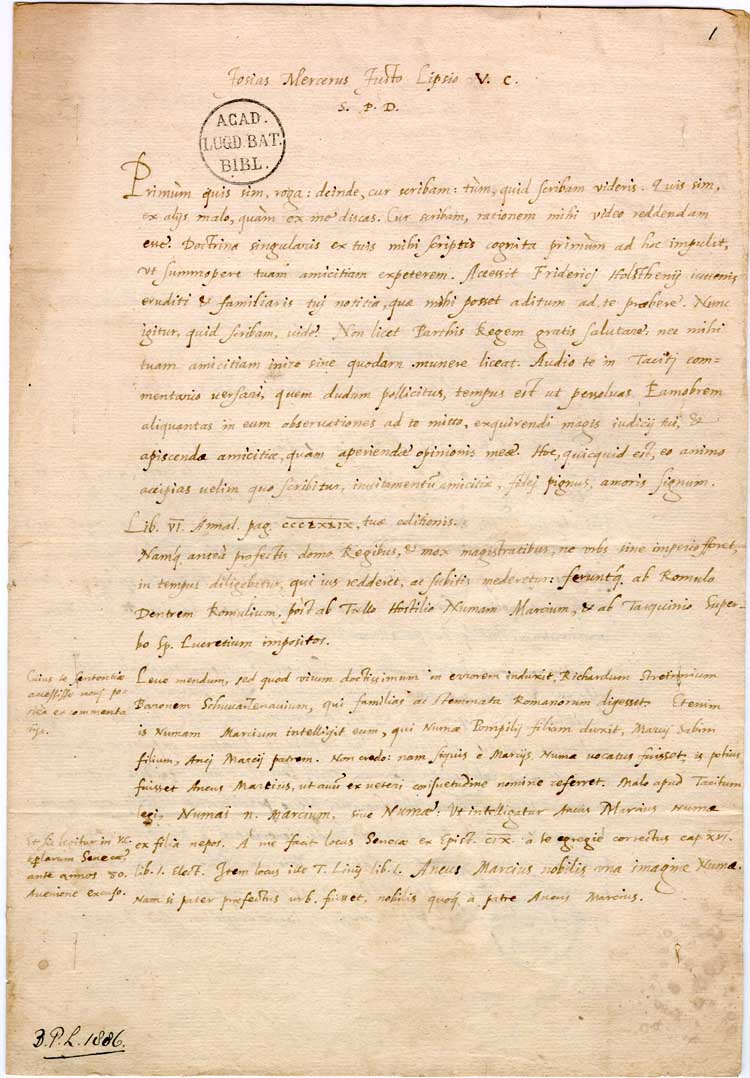 1
Josias Mercerus Justo Lipsio V. C.
S. P. D.
ACAD.
LUGD. BAT.
BIBL.
Primùm quis sim, roga: deinde, cur scribam: tùm, quid scribam videris. Quis sim,
ex alijs malo, quàm ex me discas. Cur scribam, rationem mihi video reddendam
esse. Doctrina singularis ex tuis mihi scriptis cognita primùm ad hoc impulit,
vt summopere tuam amicitiam expeterem. Accessit Friderici Holsthenij iuvenis
eruditi & familiaris tuj notitia, quæ mihi posset aditum ad te præbere. Nunc
igitur, quid scribam, vide. Non licet Parthis Regem gratis salutare: nec mihi
tuam amicitiam inire sine quodam munere liceat. Audio te in Tacitj com=
mentario versari, quem dudum pollicitus, tempus est ut persoluas. Eamobrem
aliquantas in eum observationes ad te mitto, exquirendi magis iudicij tui, &
apiscendæ amicitiæ, quàm aperiendæ opinionis meæ. Hoc, quicquid est, eo animo
accipias velim quo scribitur, invitamentū amicitiæ, fidej pignus, amoris signum.
Lib. VI. Annal. pag. tuæ editionis.
Namq̃ anteà profectis domo Regibus, & mox magistratibus, ne vrbs sine imperio fforet,
in tempus diligebatur, qui ius redderet, ac subitis mederetur: feruntq̃, ab Romulo
Dentrem Romulium, post ab Tullo Hostilio Numam Marcium, & ab Tarquinio Super-
bo Sp. Lucretium impositos.
Leve mendum, sed quod virum doctissimum in errorem induxit, Richardum Streinnium
Baronem Schwartzenavium, qui familias ac stemmata Romanorum digesset. Etenim
is Numam Marcium intelligit eum, qui Numæ Pompilij filiam duxit, Marcij Sabini
filium, Ancj Marcij patrem. Non credo: nam siquis è Marcijs Numa vocatus fuisset, is potius
fuisset Ancus Martius, ut avū ex veteri consuetudine nomine referret. Malo apud Tacitum
legi, Numai n. Marcium, siue Numæ: Vt intelligatur Ancus Marcius Numæ
ex filia nepos. A me facit locus Senecæ ex Epist. CIX. à te egregiè correctus cap. XVI.
lib. I. Elect. Item locus ille T. Livij lib. I. Ancus Marcius nobilis vna imagine Numæ.
Nam si pater præfectus urb. fuisset, nobilis quoq̃ à patre Ancus Marcius.
Cuius te sententiæ
accessisse
stea ex commenta
rijs.
Et sic legitur in
eplarum Senecæ
ante annos 80.
Avenione excuso.
B.P.L. 1886.